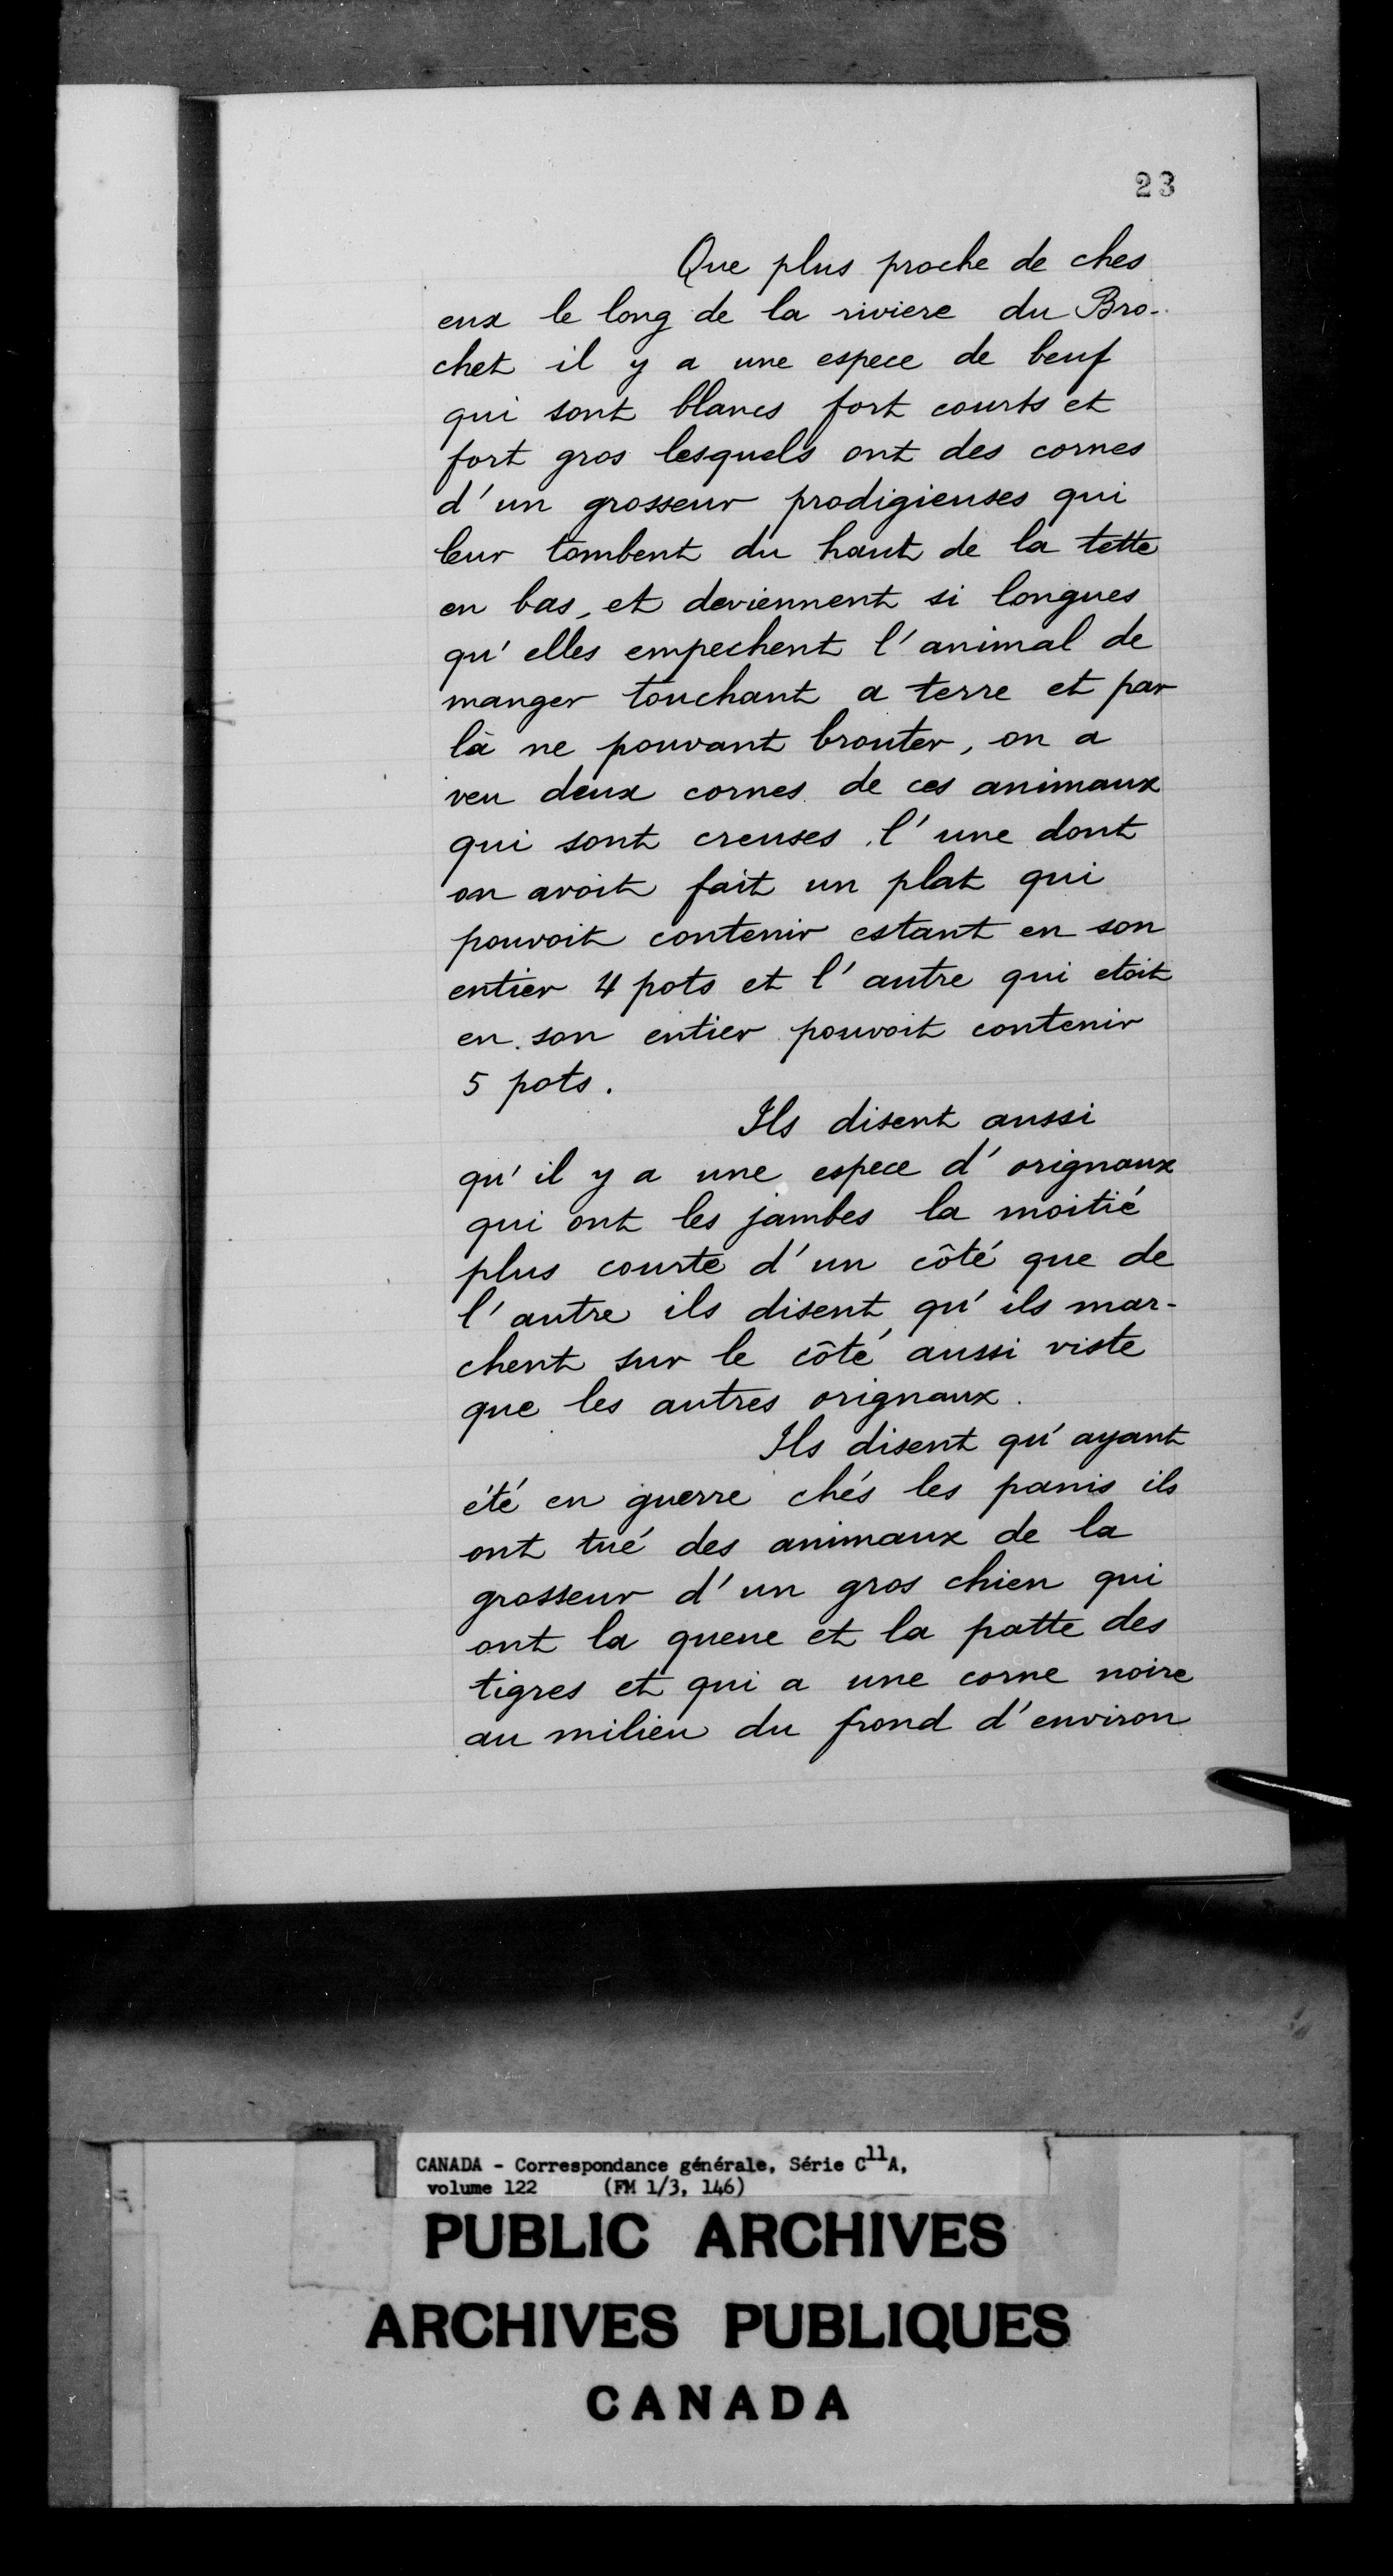 23
Que plus proche de ches
eux le long de la riviere du Bro-
chet il y a une espece de beuf
qui sont blancs fort courts et
fort gros lesquels ont des cornes
d'un grosseur prodigieuses qui
leur tombent du haut de la tette
en bas, et deviennent si longues
qu'elles empechent l'animal de
manger touchant a terre et par
là ne pouvant brouter, on a
veu deux cornes de ces animaux
qui sont creuses l'une dont
on avoit fait un plat qui
pouvoit contenir estant en son
entier 4 pots et l'autre qui etoit
en son entier pouvoit contenir
5 pots.
Ils disent aussi
qu'il y a une espece d'orignaux
qui ont les jambes la moitié
plus courte d'un côté que de
l'autre ils disent qu'ils mar-
chent sur le côté aussi viste
que les autres orignaux.
Ils disent qu'ayant
été en guerre chés les panis ils
ont tué des animaux de la
grosseur d'un gros chien qui
ont la queue et la patte des
tigres et qui a une corne noire
au milieu du frond d'environ
CANADA - Correspondance générale, Série C11A,
volume 122 (FM 1/3, 146)
PUBLIC ARCHIVES
ARCHIVES PUBLIQUES
CANADA